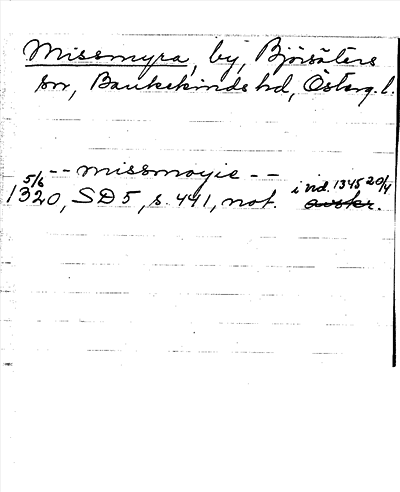 Missmyra, by, Björsäters
sn, Bankekinds hd, Österg. l.
-- missmoyie --
5/6 1320, SD 5, s. 441, not. i vid. 1345 20/4
avskr.